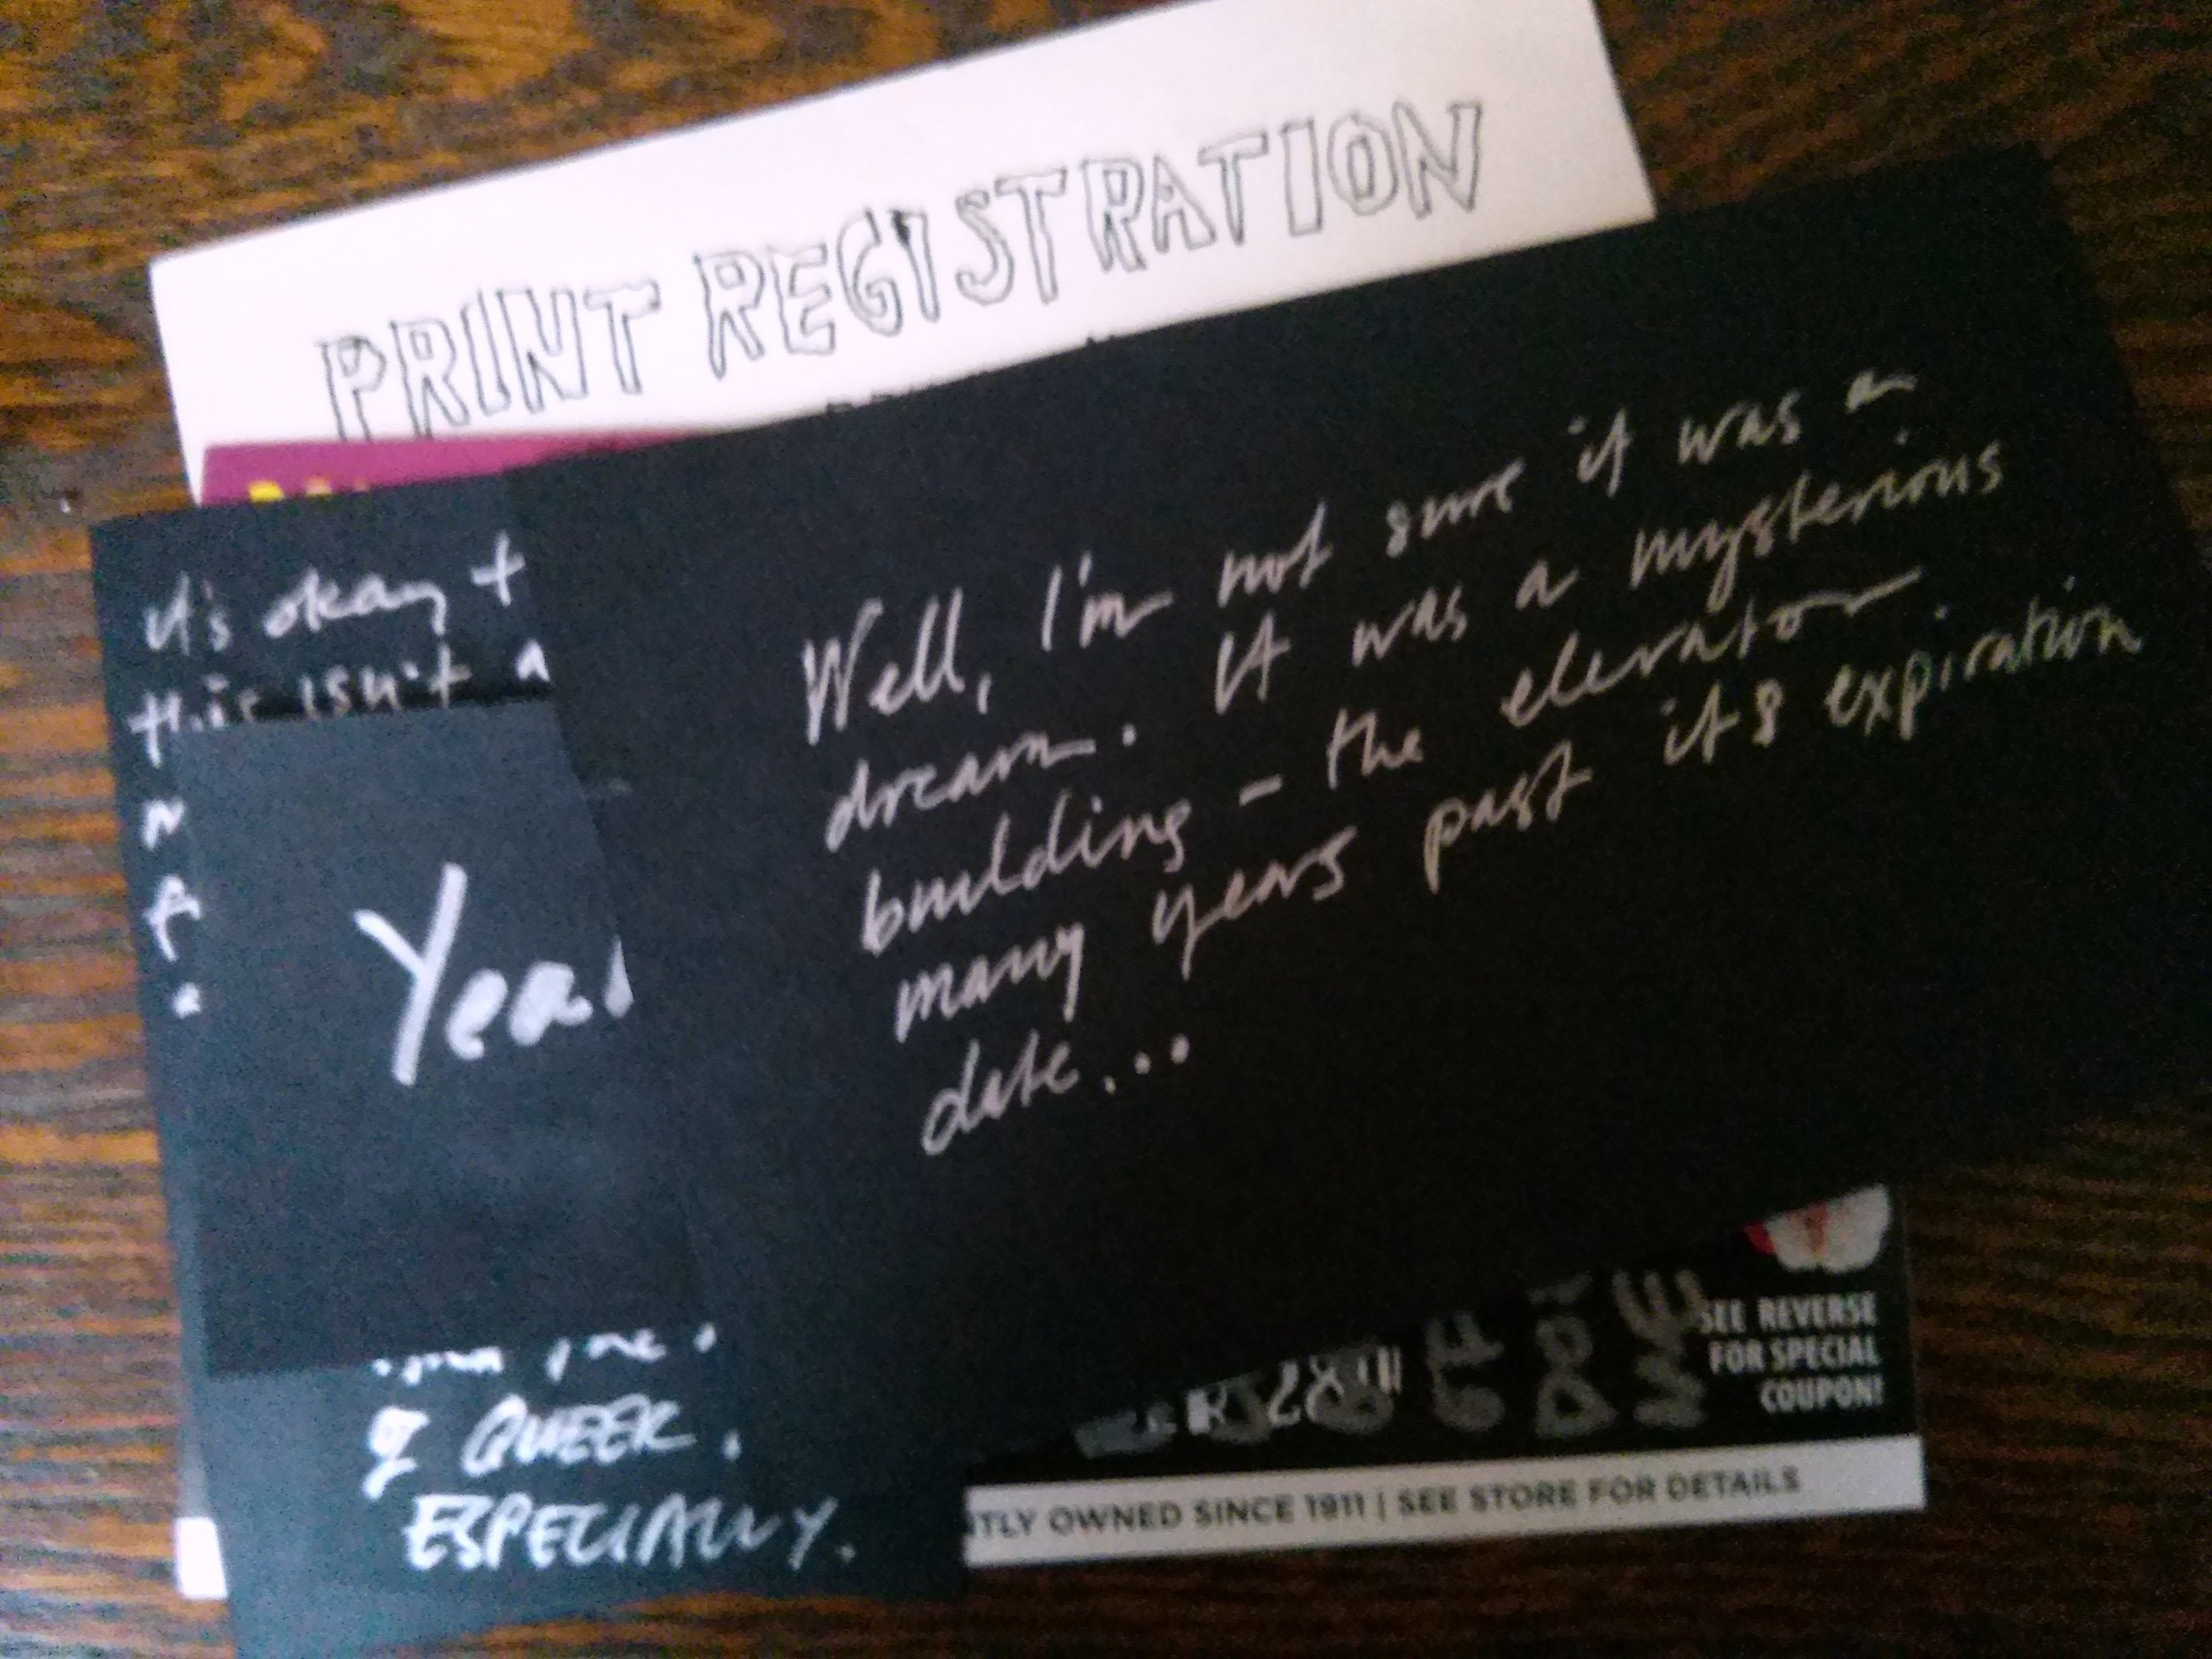 PRINT REGISTRATION
it's okay
this isn't a
Well, I'm not sure it was a
dream. It was a mysterious
building – the elevator
many years past its expiration
date...
QUEER.
ESPECIALLY.
SEE REVERSE
FOR SPECIAL
COUPON!
OWNED SINCE 1911 | SEE STORE FOR DETAILS